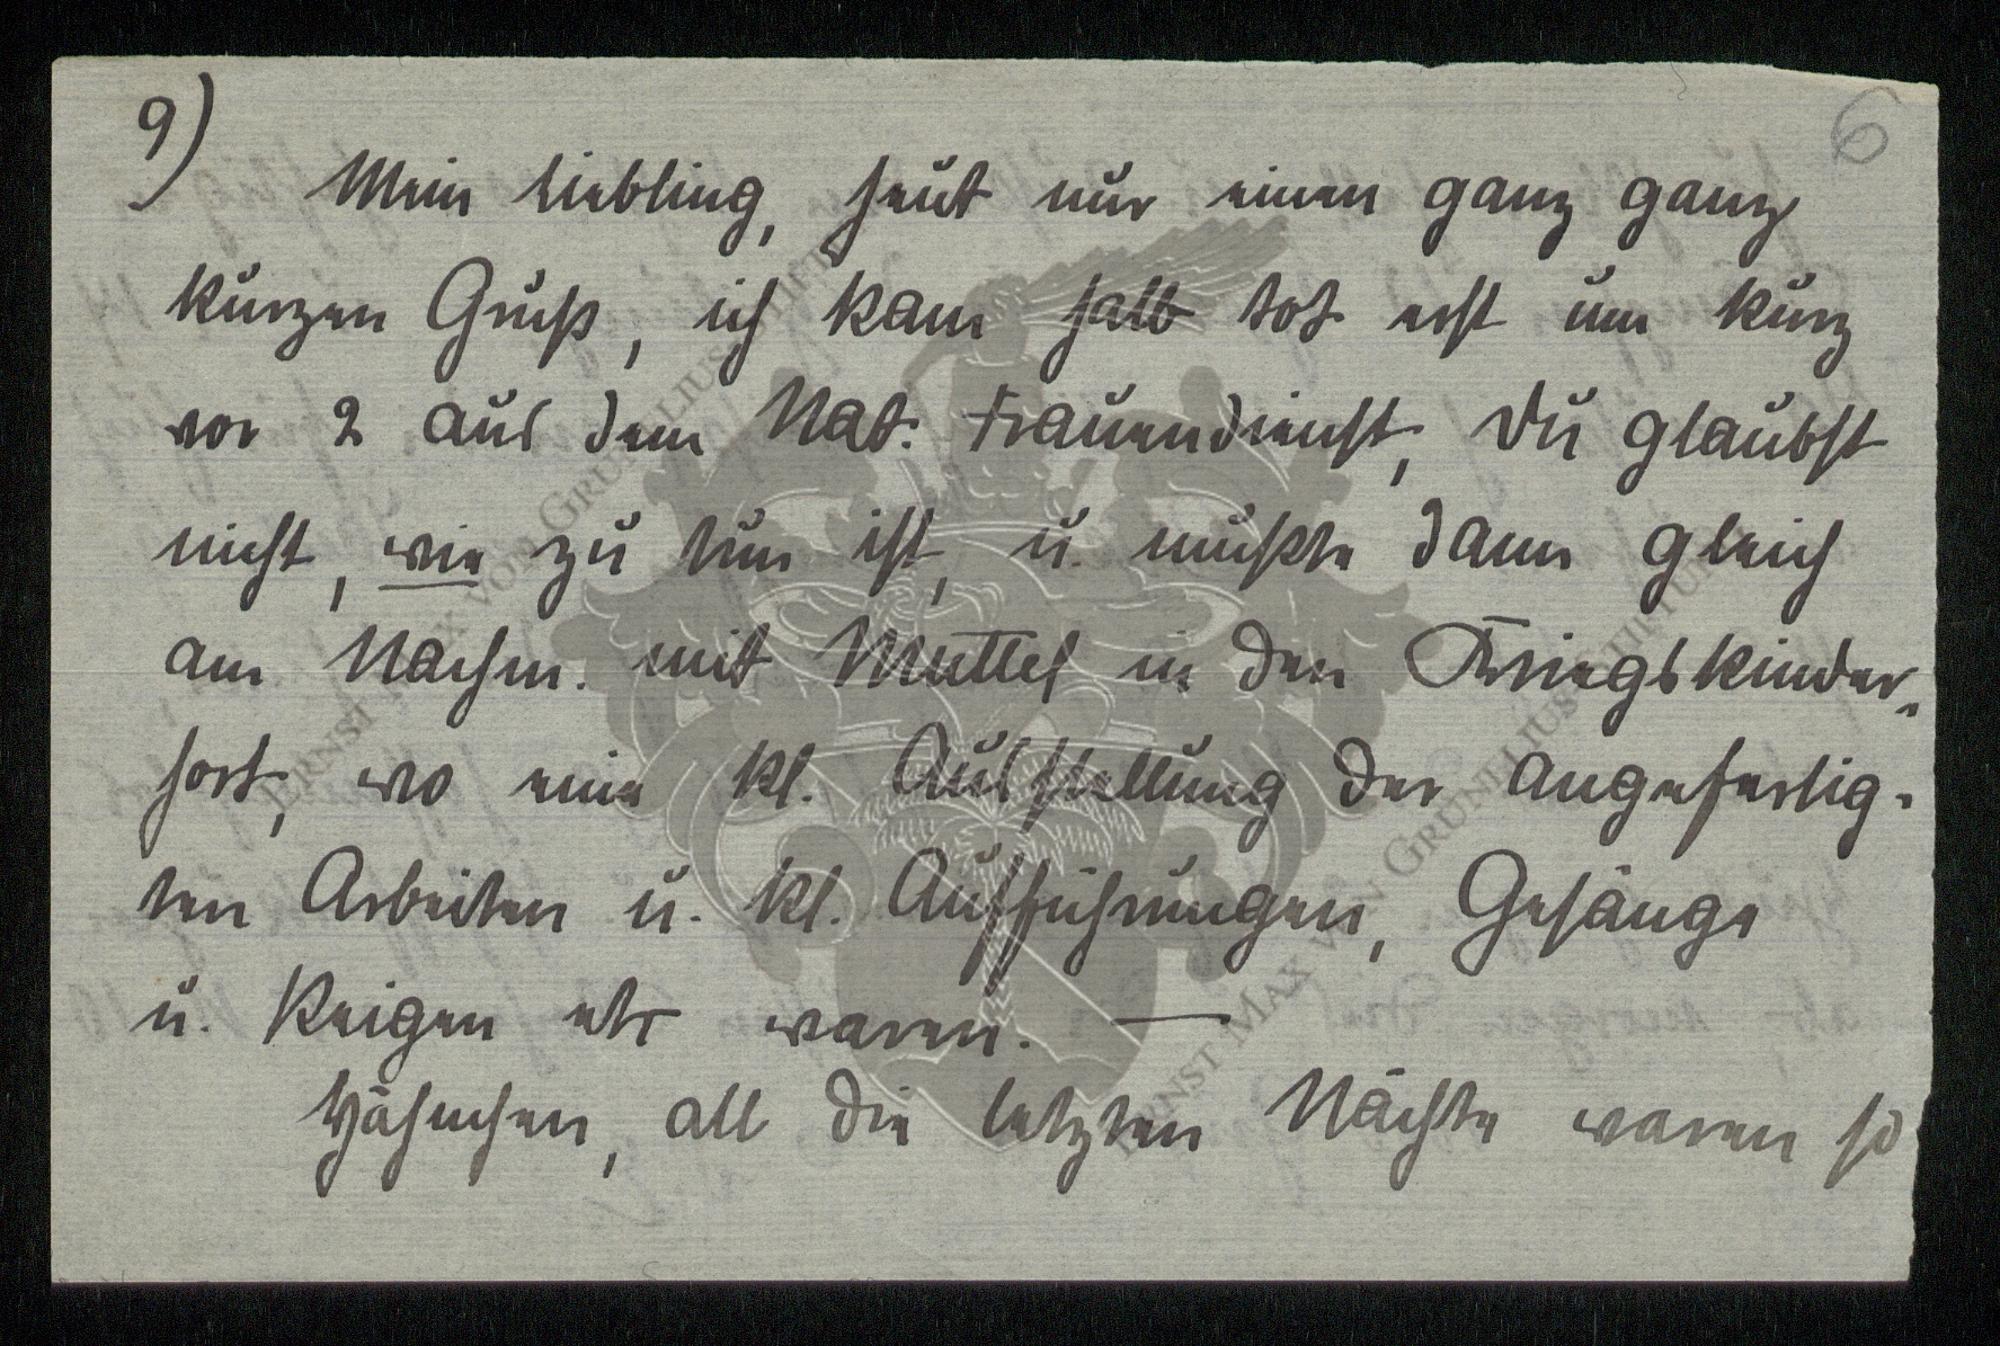 9)
6
Mein Liebling, heut nur einen ganz ganz
kurzen Gruß, ich kam halb tot erst um kurz
vor 2 aus dem Nat. Frauendienst, Du glaubst
nicht, wie zu tun ist, u. mußte dann gleich
am Nachm. mit Muttel in den Kriegskinder-
hort, wo eine kl. Ausstellung der angefertig-
ten Arbeiten u. kl. Aufführungen, Gesänge
u. Reigen etc waren. —
all die letzten Nächte waren so
ERNST MAX VON GRUNELIUS-STIFTUNG
ERNST MAX VON GRUNELIUS-STIFTUNG